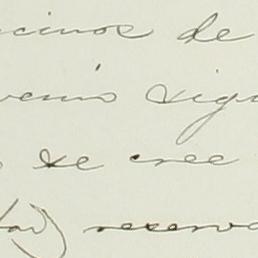 cinos de
venio sigu
se cree
tad) reserva